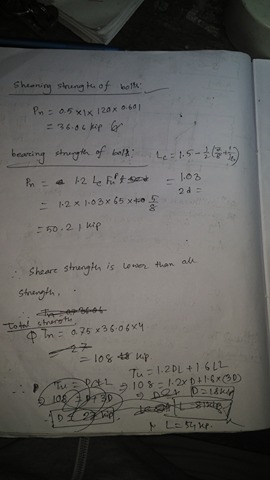 Shearing strength of bolts:
Pn = 0.5 x 1 x 120 x 0.601
= 36.06 kip
bearing strength of bolts: Lc = 1.5 - 1/2 (7/8 +
= 1.03
Pn = 1.2 Lc
= 1.2 x 1.03 x 65 x 5/8
= 50.21 kip
∴ Shear strength is lower than all
strength.
Total strength
ϕ Tn = 0.75 x 36.06 x 4
= 108 kip
Tu = 1.2DL + 1.6LL
Tu = D+L ⇒ 108 = 1.2 x D + 1.6 x (3D)
⇒ 108 = D+3D D = 18 kip
D = 27 kip
L = 54 kip.